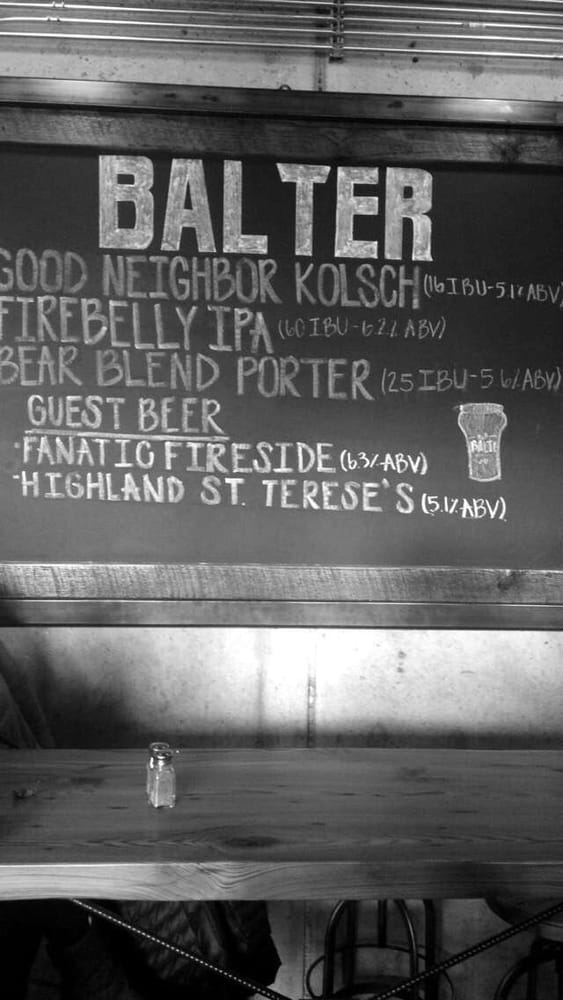 BALTER
GOOD NEIGHBOR KOLSCH (16 IBU-5.1% ABV)
FIREBELLY IPA (60 IBU-6.2% ABV)
BEAR BLEND PORTER (25 IBU-5.6% ABV)
GUEST BEER
·FANATIC FIRESIDE (6.3% ABV)
BALTER
-HIGHLAND ST. TERESE'S (5.1% ABV)